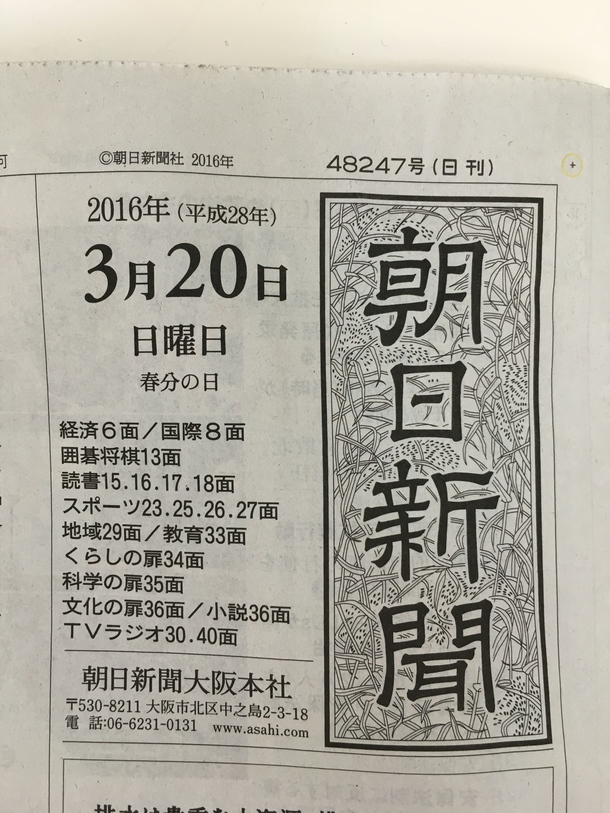 ©朝日新聞社 2016年
48247号(日刊)
朝日新聞
2016年(平成28年)
3月20日
日曜日
春分の日
経済6面/国際8面
囲碁将棋13面
読書15.16.17.18面
スポーツ23.25.26.27面
地域29面/教育33面
くらしの扉34面
科学の扉35面
文化の扉36面/小説36面
TVラジオ30.40面
朝日新聞大阪本社
〒530-8211 大阪市北区中之島2-3-18
電 話:06-6231-0131 www.asahi.com